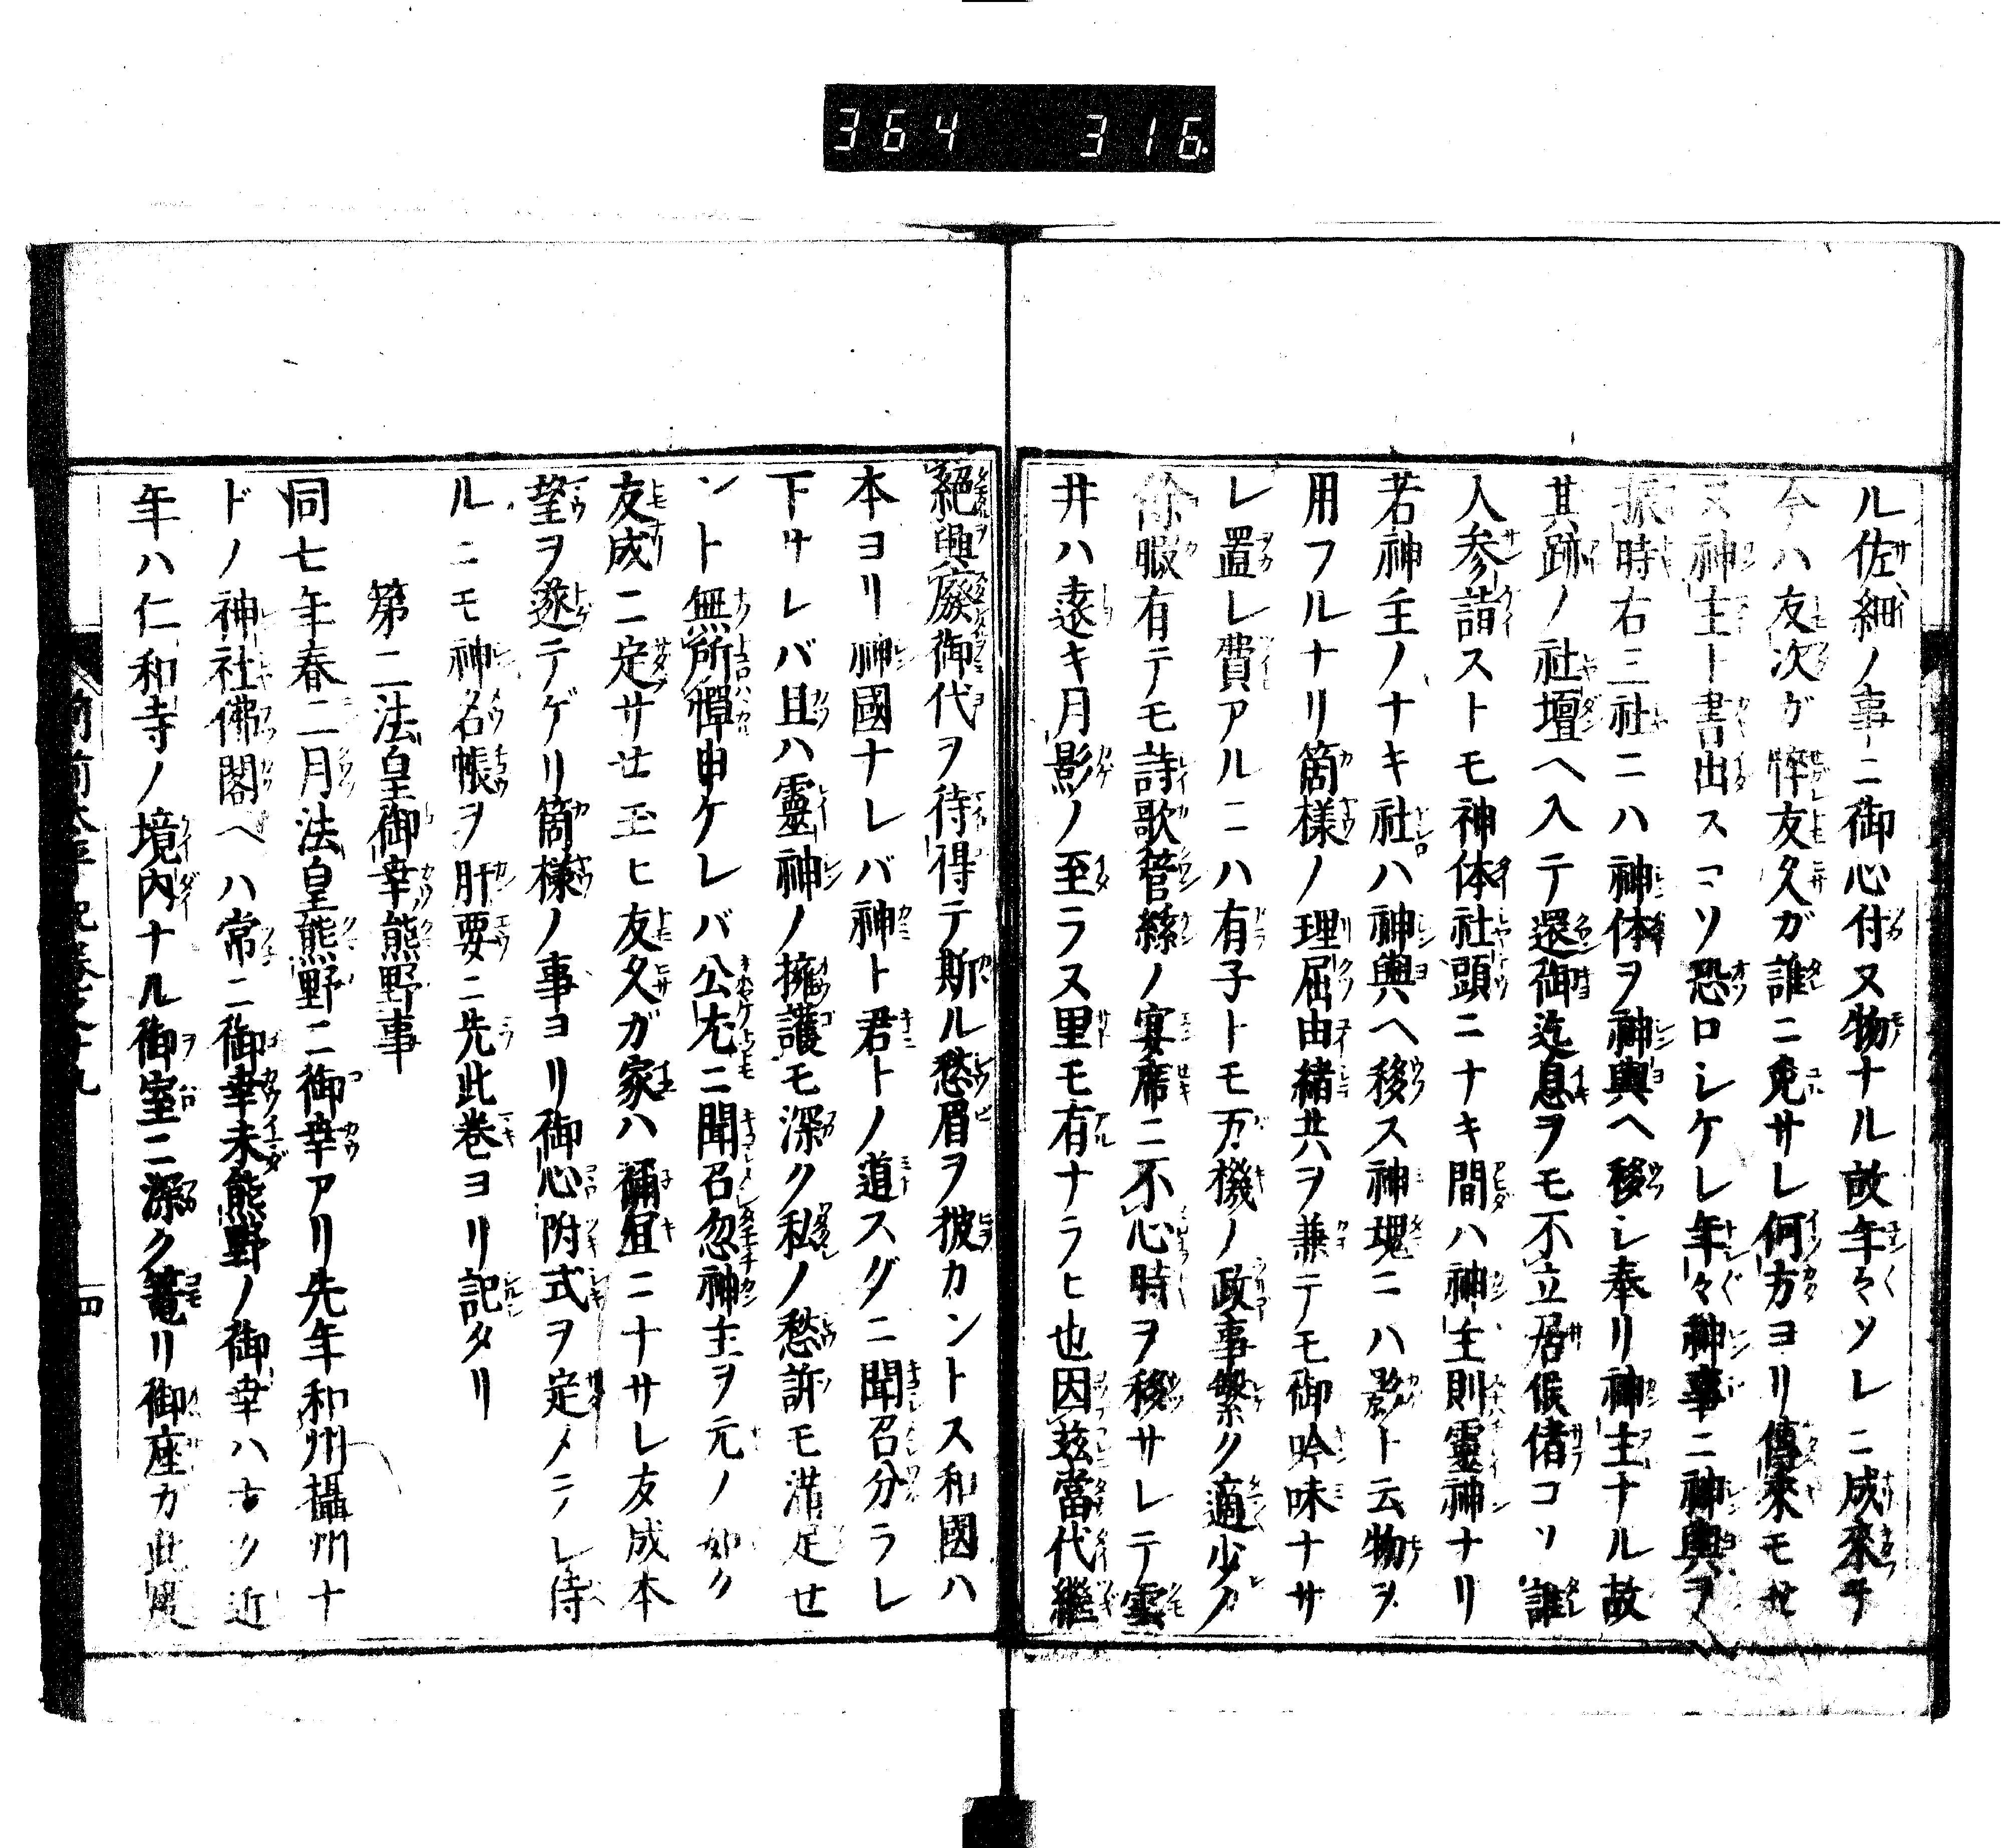 364 316.
ル佐細ノ事ニ御心付ヌ物ナル故年々ソレニ成來テ
今ハ友次ガ悴友久ガ誰ニ免サレ何方ヨリ傳來モせ
ヌ神主ト書出スコソ恐ロシケレ年々神事ニ神輿ヲ
振時右三社ニハ神体ヲ神輿ヘ移シ奉リ神主ナル故
其跡ノ社壇ヘ入テ還御迄息ヲモ不立居候儲コソ誰
人参詣ストモ神体社頭ニナキ間ハ神主則靈神ナリ
若神主ノナキ社ハ神輿ヘ移ス神現ニハ影ト云物ヲ
用フルナリ箇様ノ理屈由緒共ヲ兼テモ御吟味ナサ
レ置レ費アルニハ有子トモ万機ノ政事繁ク適少ク
餘暇有テモ詩歌管絃ノ宴席ニ不心時ヲ移サレテ雲
井ハ遠キ月影ノ至ラス里モ有ナラヒ也因茲當代繼
絕興廢御代ヲ待得テ斯ル愁眉ヲ披カントス和國ハ
本ヨリ神國ナレバ神ト君トノ道スグニ聞召分ラレ
下サレバ且ハ靈神ノ擁護モ深ク私ノ愁訴モ滿足せ
ント無所憚申ケレバ公尤ニ聞召忽神主ヲ元ノ如ク
友成ニ定サせ玉ヒ友久ガ家ハ禰宜ニナサレ友成本
望ヲ遂テゲリ箇様ノ事ヨリ御心附式ヲ定メラレ侍
ルニモ神名帳ヲ肝要ニ先此巻ヨリ記タリ
第二法皇御幸熊野事
同七年春二月法皇熊野ニ御幸アリ先年和州攝州ナ
ドノ神社佛閣ヘハ常ニ御幸未熊野ノ御幸ハナク近
年ハ仁和寺ノ境内ナル御室ニ深ク篭リ御座カ此度
前太平記巻之十九
四